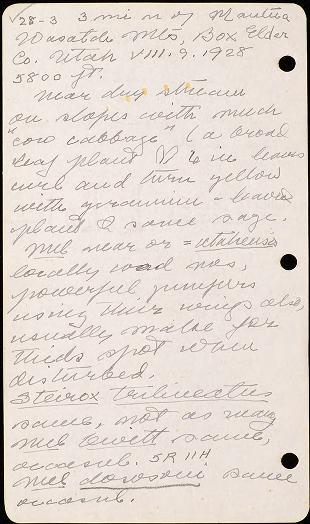 V28-3 3 mi n of Mantua
Wasatch Mts, Box Elder
Co. Utah VIII.9.1928
5800 ft.
Near dry stream
on slopes with much
"cow cabbage" (a broad
leaf plant 6 in leaves
curl and turn yellow
with geranium-leaved
plant & some sage.
Mel near or = utahensis
locally mod nos,
powerful jumpers
using their wings also,
usually make for
this spot when
disturbed.
Steirox trilineatus
same, not as many
Mel same,
occasnl. 5R 11H
Mel dawsoni same
occasnl.